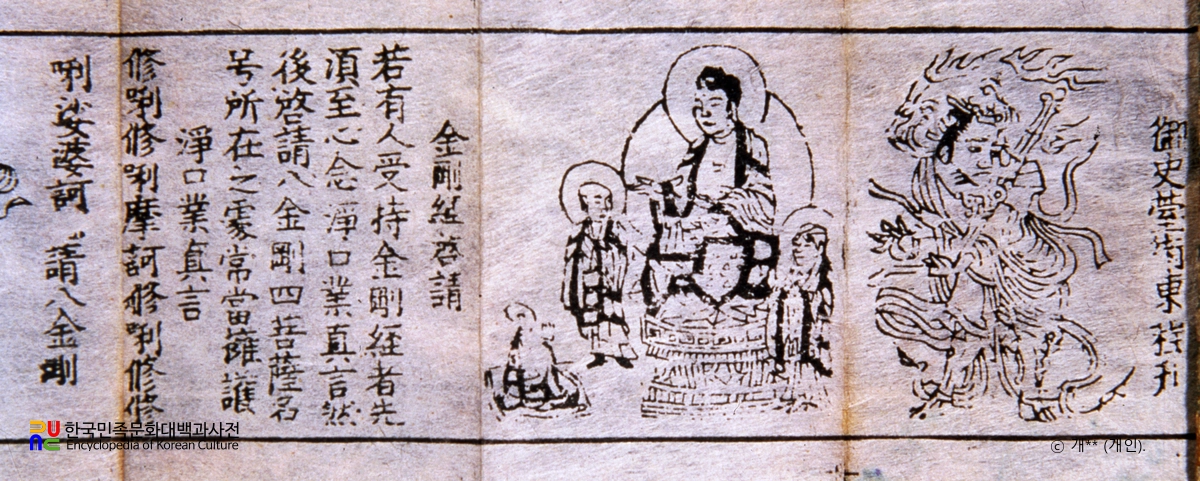 御史 街東 刊
金剛経啓請
若有人受持金剛経者先
須至心念淨口業真言然
後啓請八金剛四菩薩名
号所在之處常當擁護
淨口業真言
修唎修唎摩訶修唎修修
唎娑婆訶 請八金剛
한국민족문화대백과사전
Encyclopedia of Korean Culture
ⓒ 개** (개인).